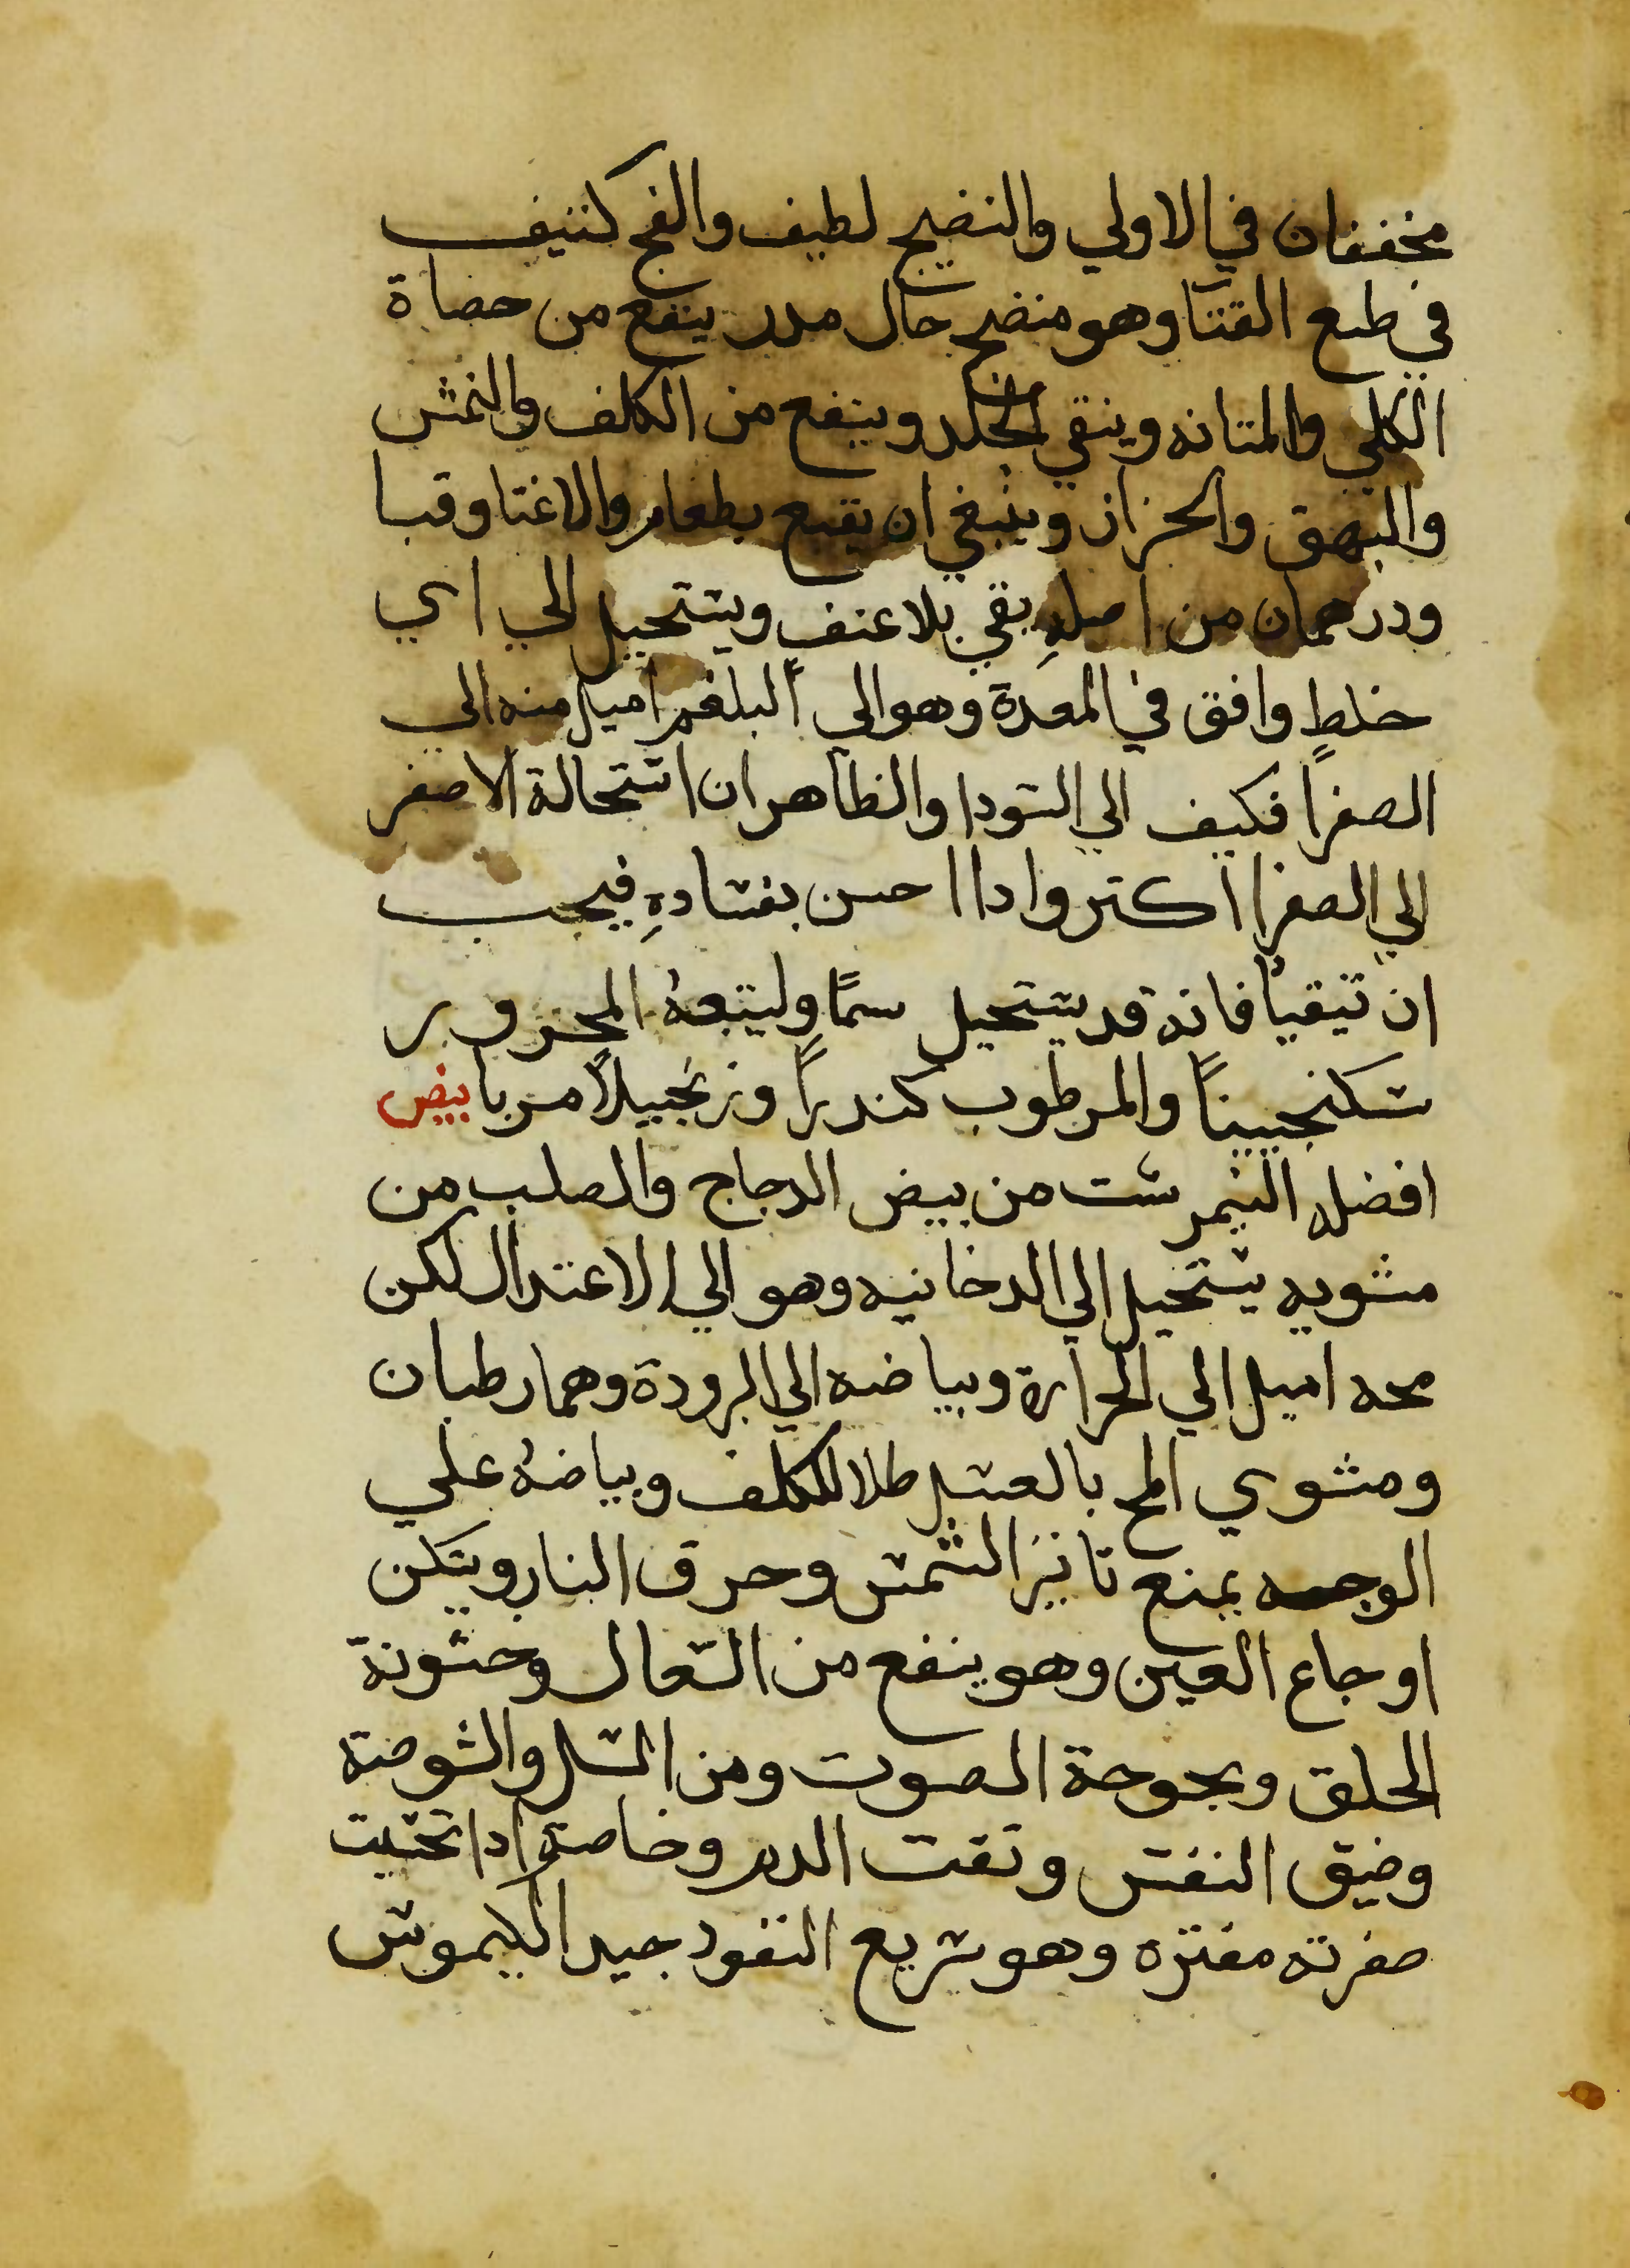 مخففان في الاولي والنضيج لطيف والفج كثيف
في طبع القثا وهو منضج جال مدر ينفع من حصاة
الكلي والمثانه وينقي الجلد وينفع من الكلف والنمش
والبهق والحزاز وينبغي ان يتبع بطعام والاغثا وقيا
ودرهمان من اصلهِ يقي بلا عنف ويستحيل الي اي
خلطٍ وافق في المعدة وهو الي البلغم اميل منه الي
الصفرا فكيف الي السودا والظاهر ان استحالة الاصفر
الي الصفرا اكثر واذا احس بفسادهِ فيجب
ان تيقيا فانه قد يستحيل سمًا وليتبعهُ المحرور
سكنجبينًا والمرطوب كندرًا وزنجبيلاً مربا بيض
افضله النيمرشت من بيض الدجاج والصلب من
مشويه يستحيل الي الدخانيه وهو الي الاعتدال لكن
محه اميل الي الحرارة وبياضه الي البرودة وهما رطبان
ومشوي المح بالعسل طلا للكلف وبياضهُ علي
الوجه يمنع تاثير الشمس وحرق النار ويسكن
اوجاع العين وهو ينفع من السعال وخشونة
الحلق وبحوحة الصوت ومن السل والشوصة
وضيق النفس ونفث الدم وخاصة اذا تحسيت
صفرته مفتره وهو سريع النفود جيد الكيموس